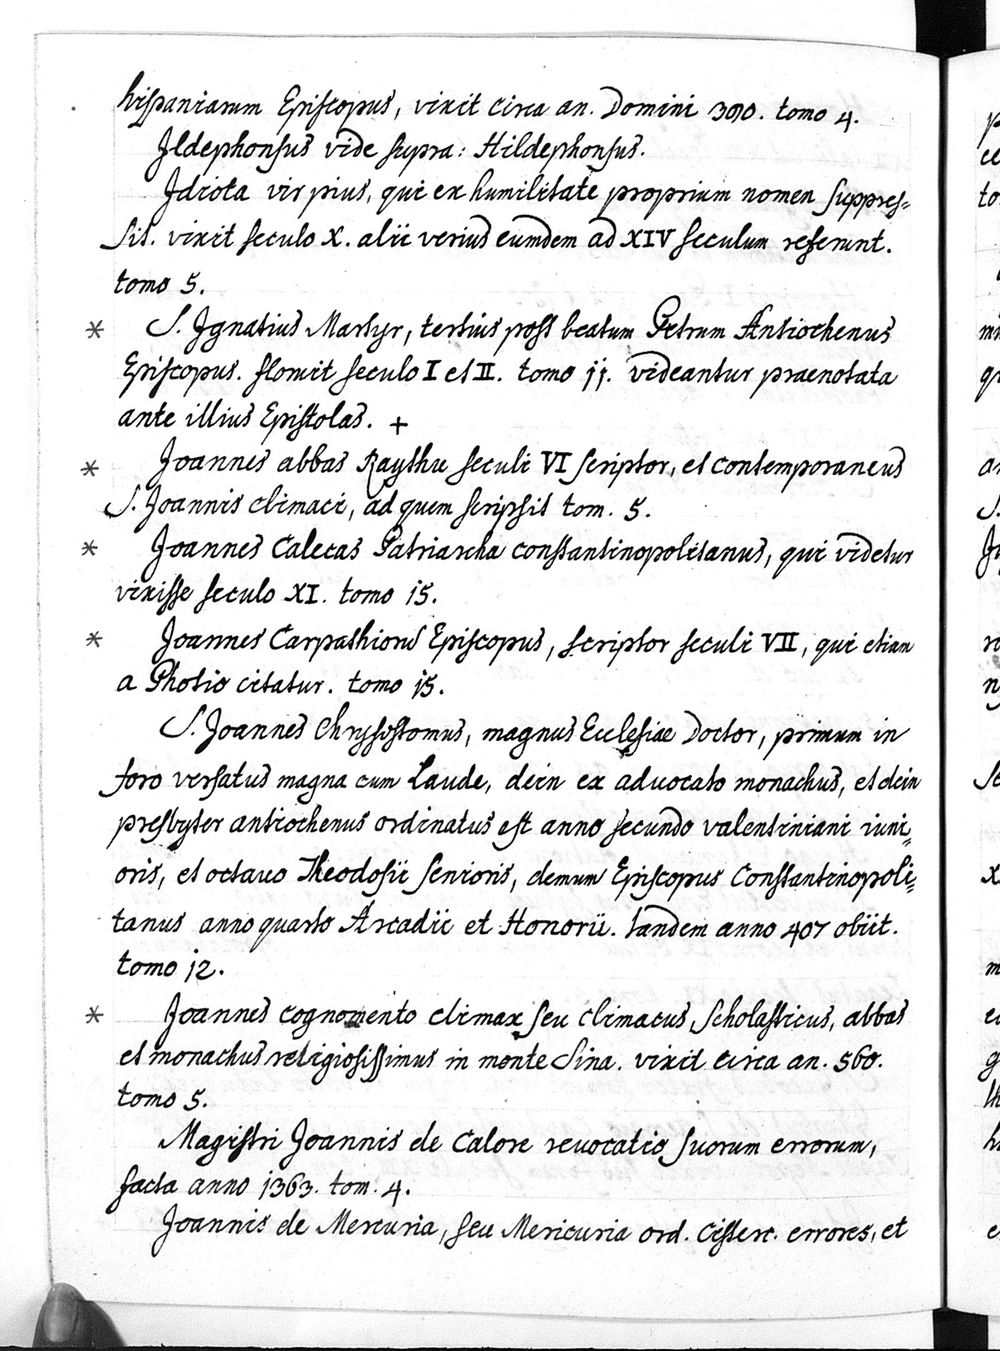 hispaniarum Episcopus, vixit circa an. Domini 390. tomo 4.
Jldephonsus vide supra: Hildephonsus.
Jdiota vir pius, qui ex humilitate proprium nomen suppres=
sit. vixit seculo X. alii verius eumdem ad XIV seculum referunt.
tomo 5.
* S. Jgnatius Martyr, tertius post beatum Petrum Antiochenus
Episcopus. floruit seculo I et II. tomo 11. videantur praenotata
ante illius Epistolas. +
* Joannes abbas Raythu seculi VI scriptor, et contemporaneus
S. Joannis climaci, ad quem scripsit tom. 5.
* Joannes Calecas Patriarcha constantinopolitanus, qui videtur
vixisse seculo XI. tomo 15.
* Joannes Carpathiorum Episcopus, scriptor seculi VII, qui etiam
a Photio citatur. tomo 15.
S. Joannes Chrysostomus, magnus Ecclesiae Doctor, primum in
foro versatus magna cum Laude, dein ex advocato monachus, et dein
presbyter antiochenus ordinatus est anno secundo valentiniani iuni=
oris, et octavo Theodosii senioris, demum Episcopus Constantinopoli=
tanus anno quarto Arcadii et Honorii. tandem anno 407 obiit.
tomo 12.
* Joannes cognomento climax seu climacus, scholasticus, abbas
et monachus religiosissimus in monte Sina. vixit circa an. 560.
tomo 5.
Magistri Joannis de Calore revocatio suorum errorum,
facta anno 1363. tom. 4.
Joannis de Mercuria, seu Mericuria ord. cisterc. errores, et